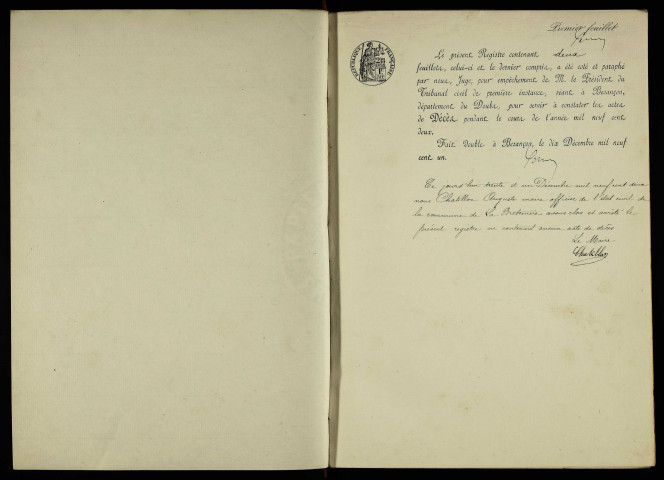 Premier feuillet
RÉPUBLIQUE FRANÇAISE
Le présent Registre contenant deux
feuillets, celui-ci et le dernier compris, a été coté et paraphé
par nous, Juge, pour empêchement de M. le Président du
Tribunal civil de première instance, séant à Besançon,
département du Doubs, pour servir à constater les actes
de Décès pendant le cours de l'année mil neuf cent
deux.
Fait double à Besançon, le dix Décembre mil neuf
cent un.
Ce jourd'hui trente et un Décembre mil neuf cent deux
nous Chatillon Auguste maire officier de l'état civil de
la commune de La Bretenière avons clos et arrêté le
présent registre ne contenant aucun acte de décès
Le Maire
Chatillon